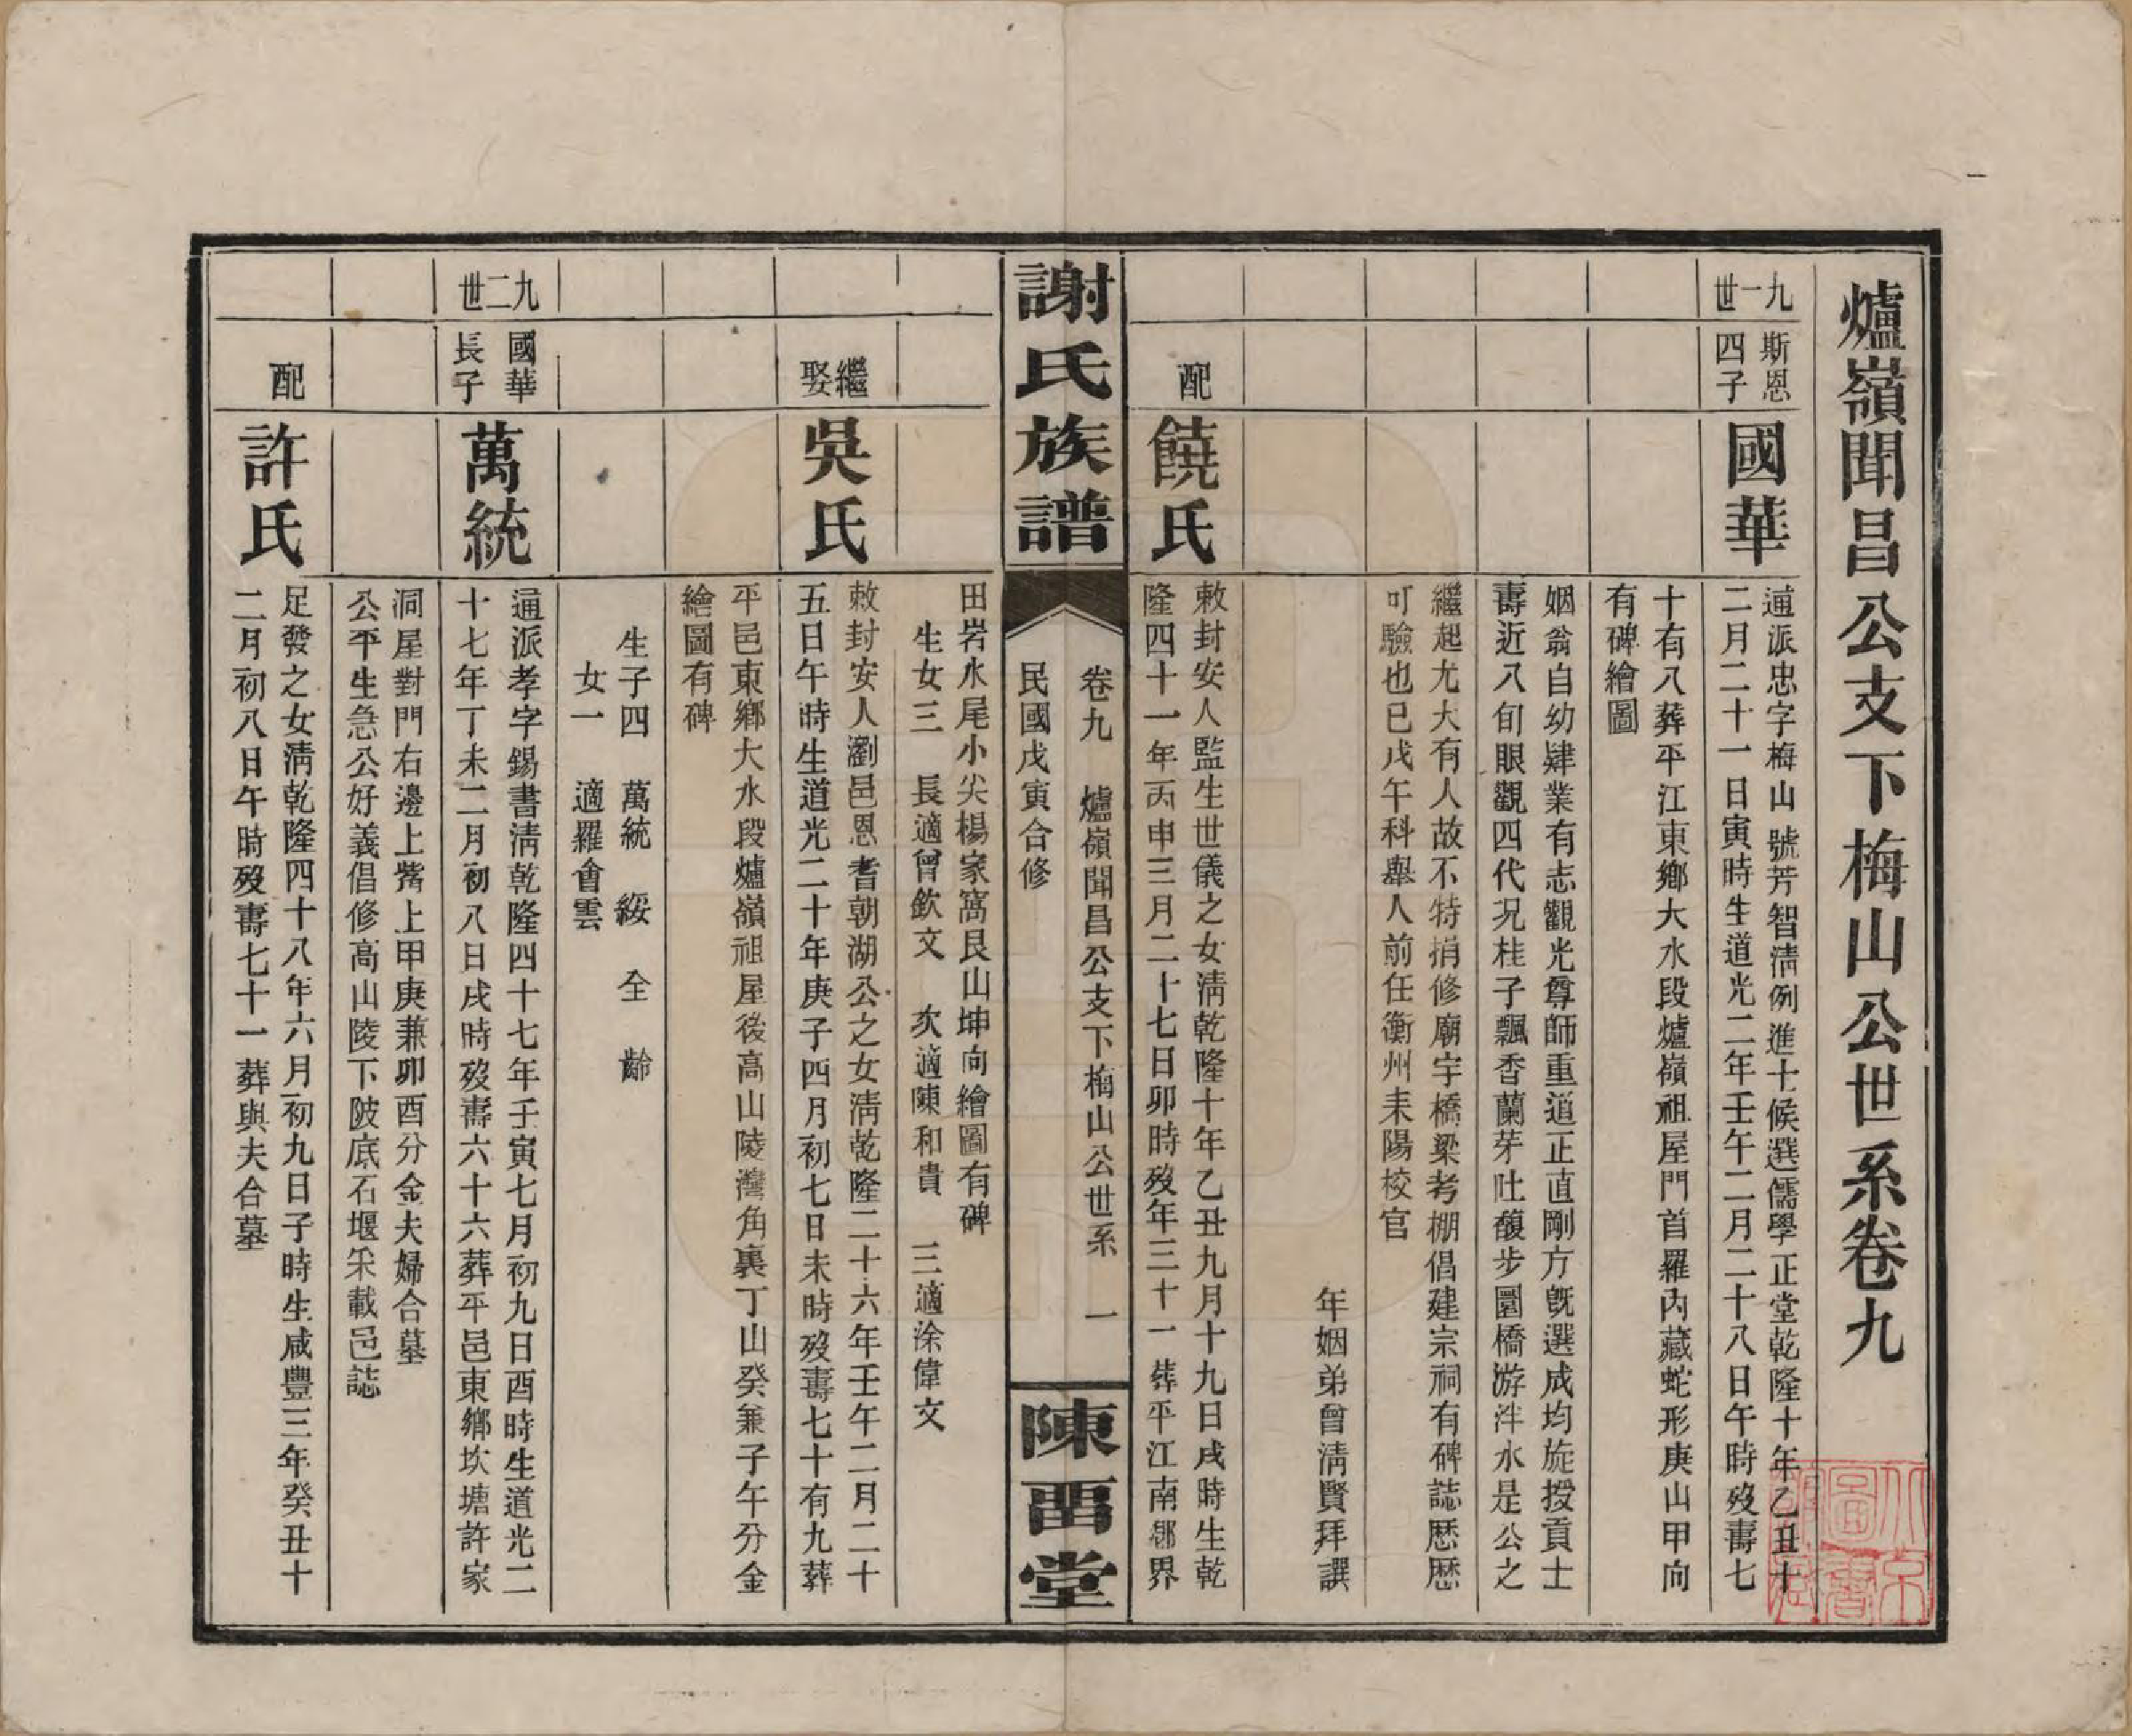 爐嶺聞昌公支下梅山公世系卷九
九一世
斯恩
四子
國華
通派忠字梅山號芳智清例進士候選儒學正堂乾隆十年乙丑十
二月二十一日寅時生道光二年壬午二月二十八日午時歿壽七
十有八葬平江東鄉大水段爐嶺祖屋門首羅內藏蛇形庚山甲向
有碑繪圖
姻翁自幼肄業有志觀光尊師重道正直剛方旣選成均旋授貢士
壽近八旬眼觀四代况桂子飄香蘭芽吐馥步圜橋游泮水是公之
繼起尤大有人故不特捐修廟宇橋梁考棚倡建宗祠有碑誌歷歷
可驗也已戊午科舉人前任衡州耒陽校官
年姻弟曾清賢拜譔
配
饒氏
敕封安人監生世儀之女清乾隆十年乙丑九月十九日戌時生乾
隆四十一年丙申三月二十七日卯時歿年三十一葬平江南鄉界
謝氏族譜
卷九　爐嶺聞昌公支下梅山公世系　一
民國戊寅合修
陳畱堂
田岩水尾小尖楊家窩艮山坤向繪圖有碑
生女三　長適曾欽文　次適陳和貴　三適涂偉文
繼娶
吳氏
敕封安人瀏邑恩耆朝湖公之女清乾隆二十六年壬午二月二十
五日午時生道光二十年庚子四月初七日未時歿壽七十有九葬
平邑東鄉大水段爐嶺祖屋後高山陵灣角裏丁山癸兼子午分金
繪圖有碑
生子四　萬統　綏　全　齡
女一　適羅會雲
九二世
國華
長子
萬統
通派孝字錫書清乾隆四十七年壬寅七月初九日酉時生道光二
十七年丁未二月初八日戌時歿壽六十六葬平邑東鄉坎塘許家
洞屋對門右邊上嘴上甲庚兼卯酉分金夫婦合墓
公平生急公好義倡修高山陵下陂底石堰采載邑誌
配
許氏
足發之女清乾隆四十八年六月初九日子時生咸豐三年癸丑十
二月初八日午時歿壽七十一葬與夫合墓